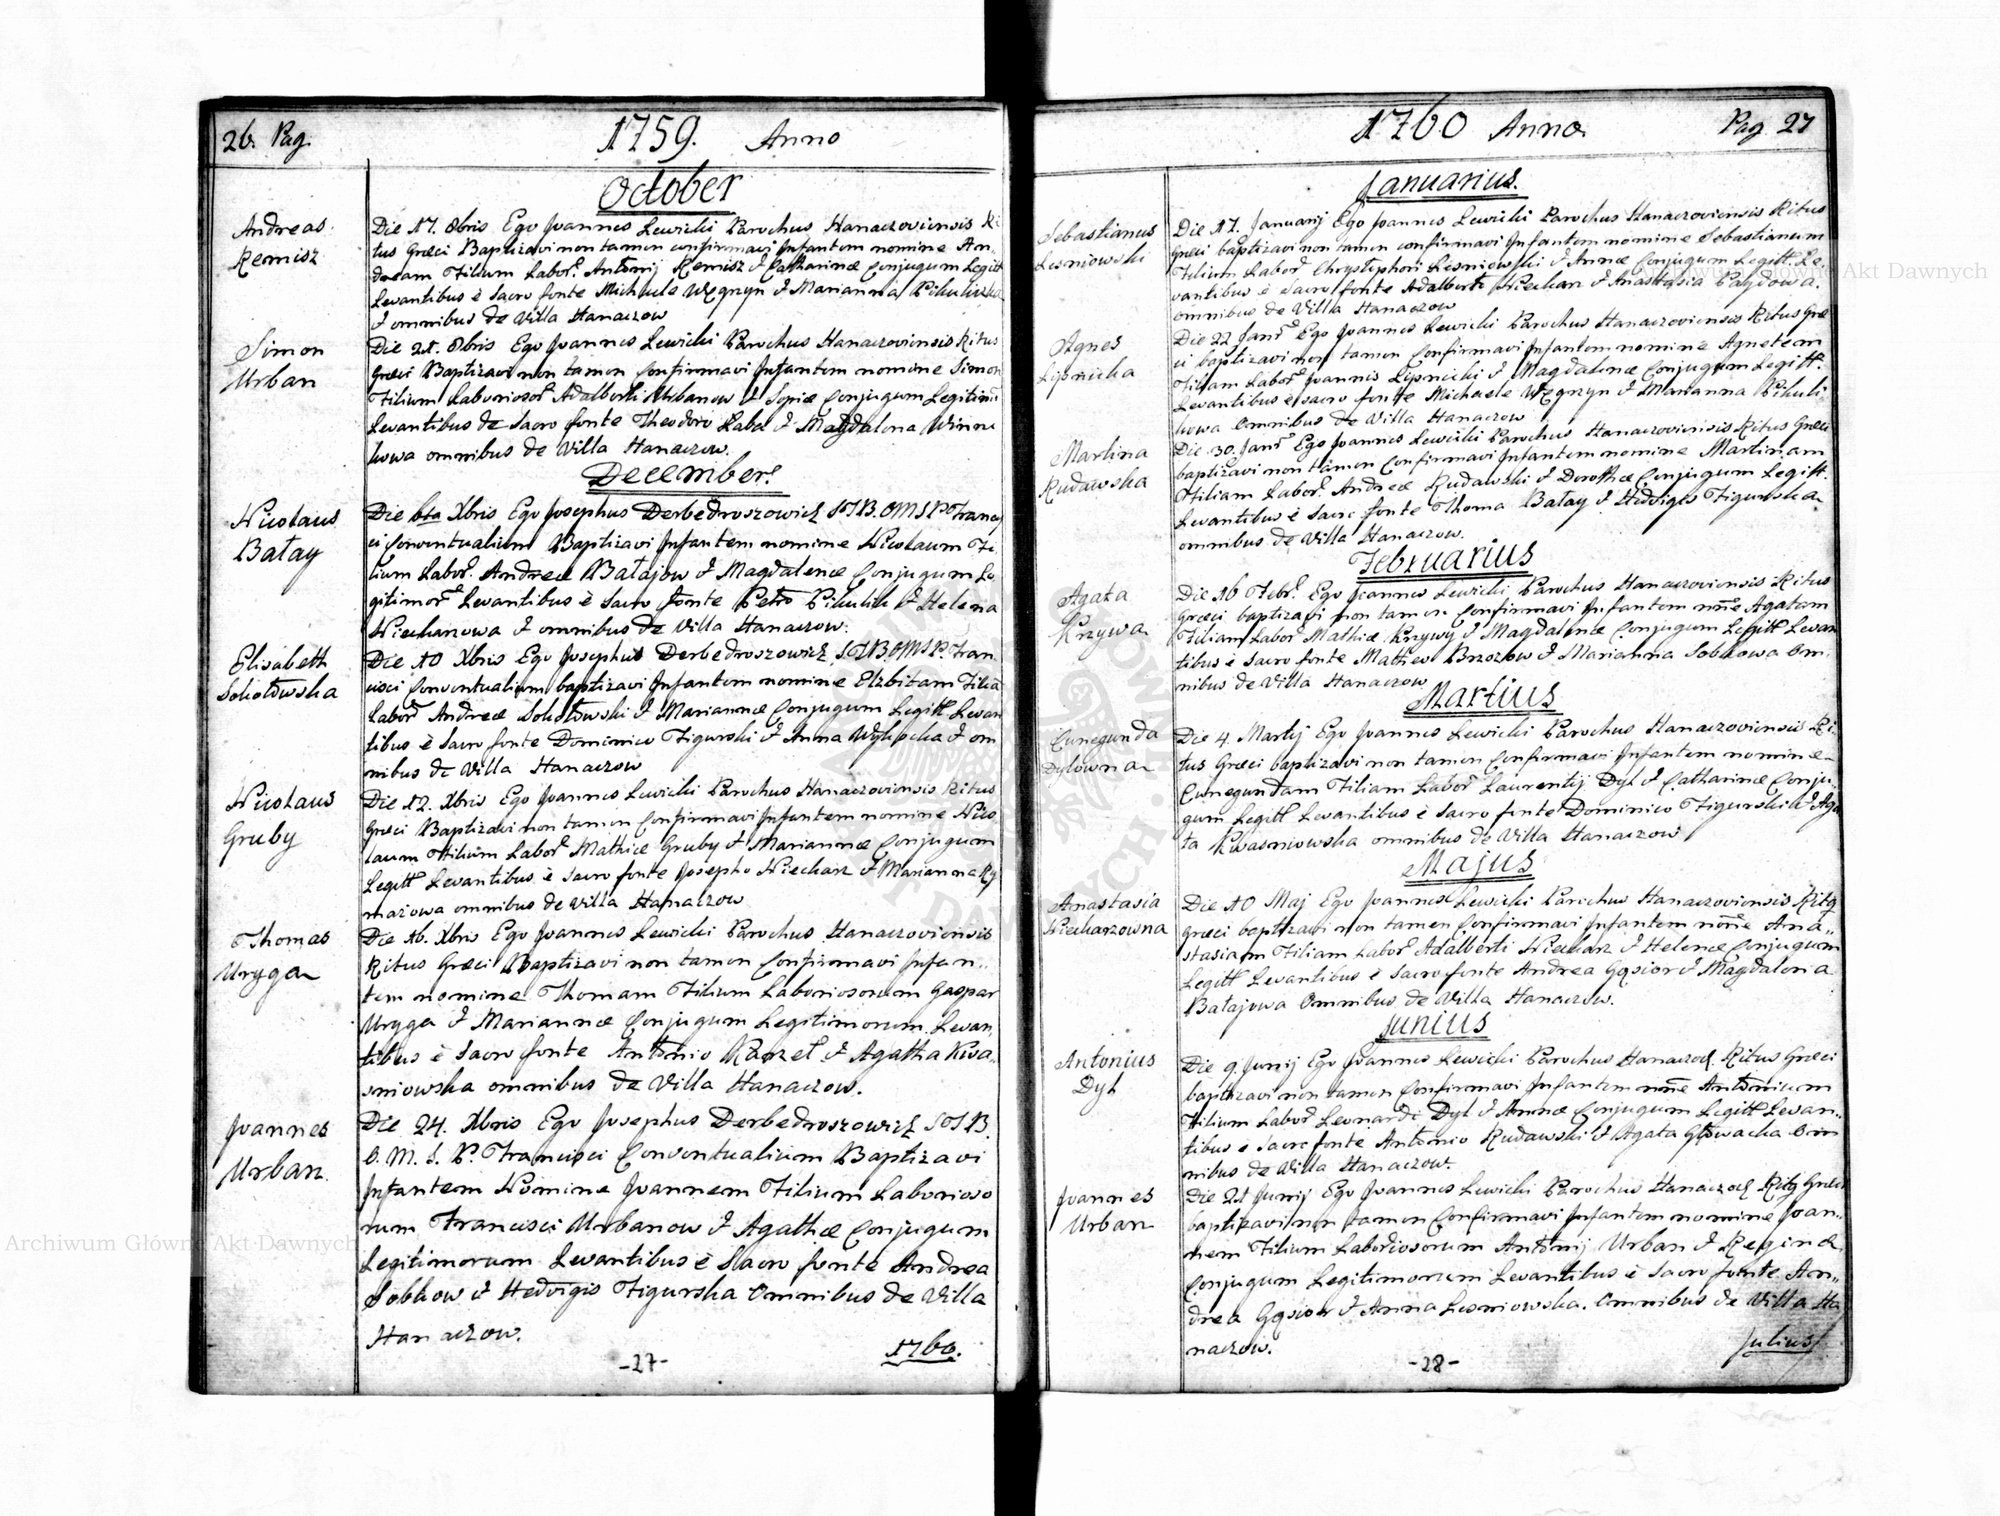 26. Pag.
1759. Anno
October
Andreas
Remisz
Die 17. 8bris Ego Joannes Lewicki Parochus Hanaczoviensis Ri
tus Græci Baptizavi non tamen confirmavi Infantem nomine An-
dream Filium Labor. Antonij Remisz & Catharinæ Conjugum Legitt
Levantibus è Sacro fonte Michaele Węgrzyn & Marianna Pikulicka
& omnibus de Villa Hanaczow
Simon
Urban
Die 21. 8bris Ego Joannes Lewicki Parochus Hanaczoviensis Ritus
Græci Baptizavi non tamen Confirmavi Infantem nomine Simon
Filium Laborioso Adalberti Urbanow & Sopiæ Conjugum Legitim
Levantibus de Sacro fonte Theodoro Laba & Magdalena Winni
kowa omnibus de Villa Hanaczow.
December.
Nicolaus
Batay
Die 6ta Xbris Ego Josephus Derbedroszowicz STB. OMS P. Francis
ci Conventualium Baptizavi Infantem nomine Nicolaum Fi
lium Labor. Andreæ Batajow & Magdalenæ Conjugum Le
gitimor Levantibus è Sacro fonte Petro Pikulik & Helena
Niechanowa & omnibus de Villa Hanaczow.
Elisabeth
Sokołowska
Die 10 Xbris Ego Josephus Derbedroszowicz, STB. OMS P. Fran
cisci Conventualium baptizavi Infantem nomine Elzbitam Filia
Labor Andreæ Sokołowski & Mariannæ Conjugum Legitt Levan
tibus è Sacro fonte Dominico Figurski & Anna & om
nibus de Villa Hanaczow
Nicolaus
Gruby
Die 12. Xbris Ego Joannes Lewicki Parochus Hanaczoviensis Ritus
Græci Baptizavi non tamen Confirmavi Infantem nomine Nico
laum Filium Labor Mathiæ Gruby & Mariannæ Conjugum
Legitt Levantibus è Sacro fonte Josepho Niechan & Marianna Ry
mazowa omnibus de Villa Hanaczow
Thomas
Uryga
Die 16. Xbris Ego Joannes Lewicki Parochus Hanaczoviensis
Ritus Græci Baptizavi non tamen Confirmavi Infan..
tem nomine Thomam Filium Laboriosorum Gaspar
Uryga & Mariannæ Conjugum Legitimorum. Levan,
tibus è Sacro fonte Antonio Karzeł & Agatha Kwa,
sniowska omnibus de Villa Hanaczow.
Joannes
Urban.
Die 24. Xbris Ego Josephus Derbedroszowicz STB.
O. M. S. P. Francisci Conventualium Baptizavi
Infantem Nomine Joannem Filium Laborioso
rum Francisci Urbanow & Agathæ Conjugum
Legitimorum Levantibus è Sacro fonte Andrea
Sobkow & Hedvigis Figurska Omnibus de Villa
Hanaczow.
1760.
-27-
1760 Anno
Pag 27
Januarius.
Sebastianus
Lesniowski
Die 17. Januarij Ego Joannes Lewicki Parochus Hanaczoviensis Ritus
Græci baptizavi non tamen confirmavi Infantem nomine Sebastianum
Filium Labor Chrystophori Lesniowski & Annæ Conjugum Legitt. Le
vantibus è Sacro fonte Adalberto Niechan & Anastasia Paydowa.
omnibus de Villa Hanaczow
Agnes
Lipnicka
Die 22 Janr Ego Joannes Lewicki Parochus Hanaczoviensis Ritus Græ
ci baptizavi non tamen Confirmavi Infantem nomine Agnetem
Filiam Labor Joannis Lipnicki & Magdalenæ Conjugum Legitt.
Levantibus è Sacro fonte Michaele Węgrzyn & Marianna Pikuli,
kowa Omnibus de Villa Hanaczow
Martina
Rudawska
Die 30. Janr Ego Joannes Lewicki Parochus Hanaczoviensis Ritus Græci
baptizavi non tamen Confirmavi Infantem nomine Martinam
Filiam Labor. Andreæ Rudawski & Dorotheæ Conjugum Legitt.
Levantibus è Sacro fonte Thoma Batay & Hedvigis Figurska
omnibus de Villa Hanaczow.
Februarius
Agata
Krzywa
Die 16 Febr. Ego Joannes Lewicki Parochus Hanaczoviensis Ritus
Græci baptizavi non tamen Confirmavi Infantem nme Agatam
Filiam Labor Mathiæ Krzywy & Magdalenæ Conjugum Legitt Levan
tibus è Sacro fonte Matheo Brzozow & Marianna Sobkowa Om
nibus de Villa Hanaczow
Martius
Cunegunda
Dylowna
Die 4. Martij Ego Joannes Lewicki Parochus Hanaczoviensis Ri,
tus Græci baptizavi non tamen Confirmavi Infantem nomine
Cunegundam Filiam Labor Laurentij Dyl & Catharinæ Conju,
gum Legitt Levantibus è Sacro fonte Dominico Figurski & Aga
ta Kwasniowska omnibus de Villa Hanaczow
Majus
Anastasia
Niecharzowna
Die 10 Maj Ego Joannes Lewicki Parochus Hanaczoviensis Ritq
græci baptizavi non tamen Confirmavi Infantem nome Ana..
stasiam Filiam Labor Adalberti Niechan & Helenæ Conjugum
Legitt Levantibus è Sacro fonte Andrea Gąsior & Magdalena
Batajowa Omnibus de Villa Hanaczow.
Junius
Antonius
Dyl
Die 9. Junij Ego Joannes Lewicki Parochus Hanaczoq Ritus Græci
baptizavi non tamen Confirmavi Infantem nme Antonium
Filium Labor Leonardi Dyl & Annæ Conjugum Legitt Levan..
tibus è Sacro fonte Antonio Rudawski & Agata Głowacka Om
nibus de Villa Hanaczow.
Joannes
Urban
Die 21 Junij Ego Joannes Lewicki Parochus Hanaczoq Ritq Græci
baptizavi non tamen Confirmavi Infantem nomine Joan..
nem Filium Laboriosorum Antonij Urban & Reginæ
Conjugum Legitimorum Levantibus è Sacro fonte An..
drea Gąsior & Anna Lesniowska. Omnibus de Villa Ha
naczow.
Julius
-28-
Archiwum Główne Akt Dawnych
Archiwum Główne Akt Dawnych